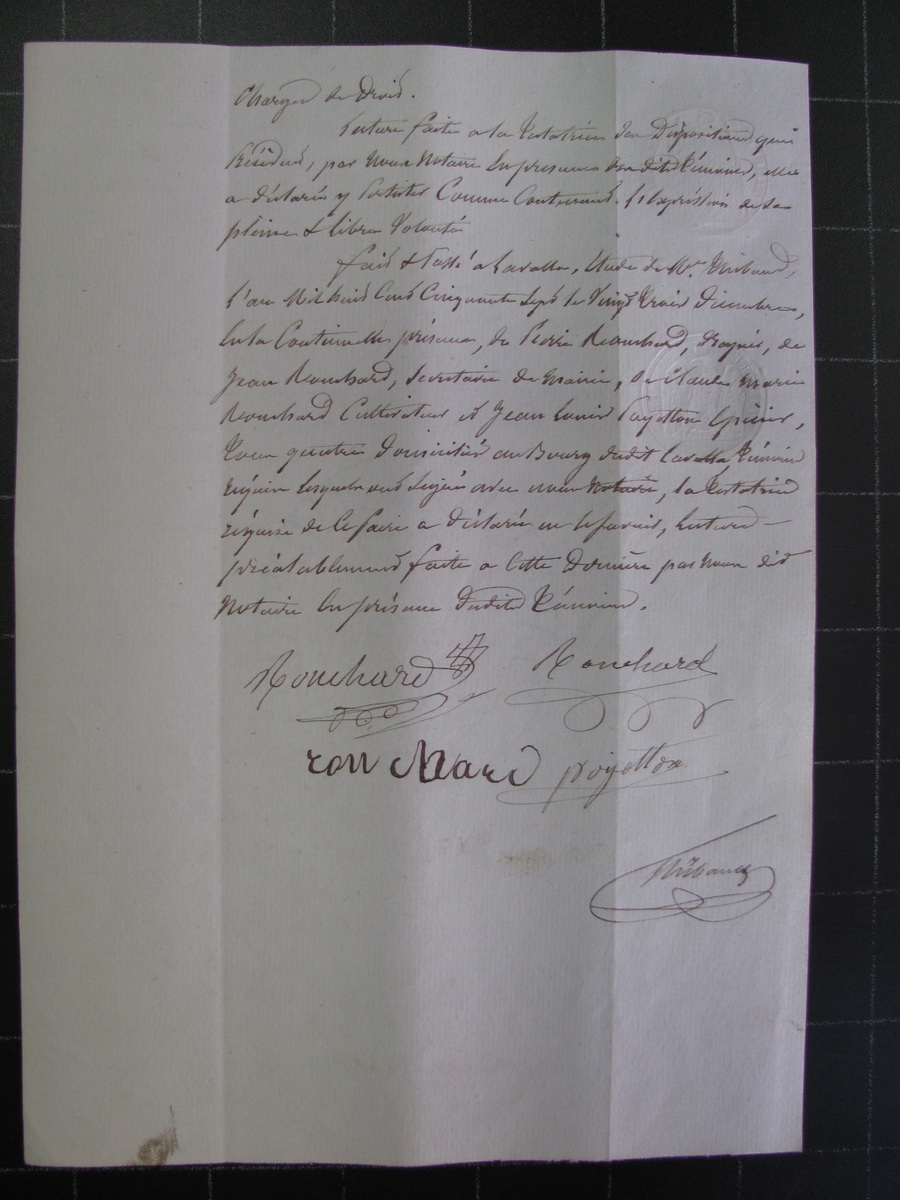 Charges de Droit.
Lecture faite a la Testatrice des Dispositions qui
Précèdent, par Nous Notaire En présence des dits Témoins, elle
a déclaré y Persister Comme Contenant l'expression de sa
pleine & libre Volonté
fait & Passé a Lavalla, Etude de Me. Thibaud,
l'an Mil huit Cent Cinquante Sept le Vingt Trois Décembre,
En la Continuelle présence, de Pierre Ronchard, de
Jean Ronchard, Secretaire de Mairie, de Claude Marie
Ronchard Cultivateur et Jean Louis Payotton Epicier,
Tous quatre Domiciliés au Bourg dudit Lavalla Témoins
réquis Lesquels ont Signé avec nous Notaire, la Testatrice
réquise de le faire a déclaré ne le savoir, Lecture
préalablement faite a cette Dernière par Nous dit
Notaire En présence desdits Témoins.
Ronchard Ronchard
ronchard payotton
Thibaud